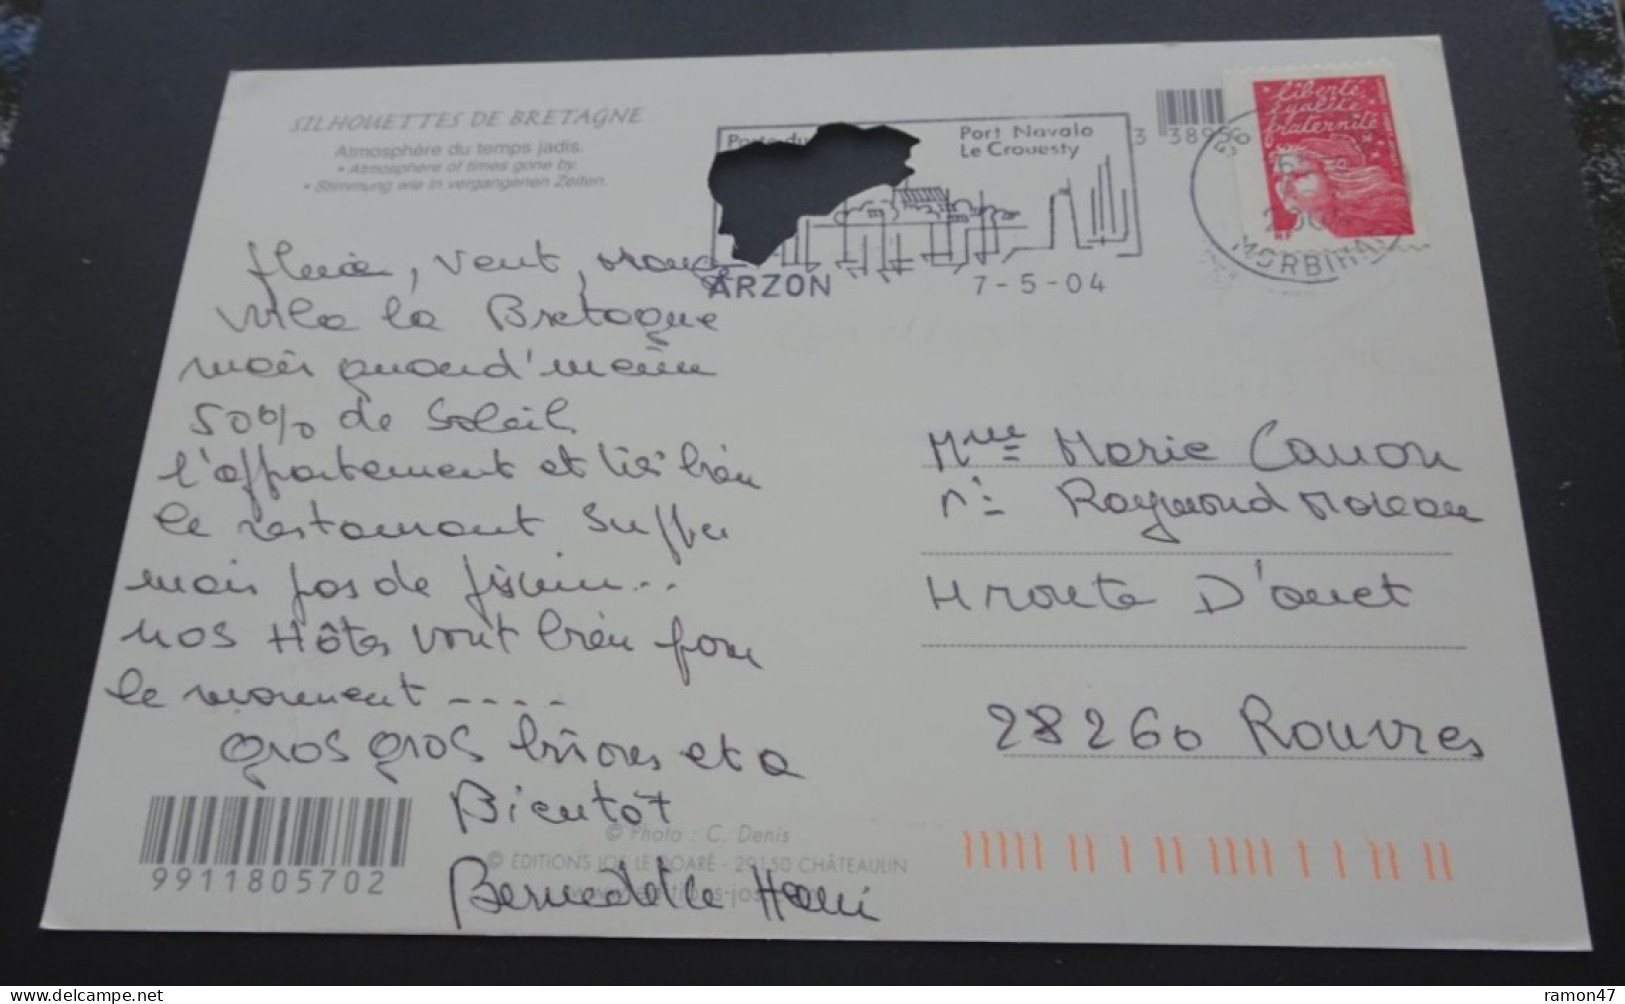 SILHOUETTES DE BRETAGNE
Atmosphère du temps jadis.
• Atmosphere of times gone by.
• Stimmung wie in vergangenen Zeiten.
Port Navalo
Le Crouesty
ARZON 7-5-04
3 38956
liberté
égalité
fraternité
RF
MORBIHAN
pluie, vent,
voila la Bretagne
mais quand'meme
50% de Soleil
l'appartement et tres bien
le restaurant Super
mais pas de piscine...
nos Hôtes vont bien pour
le moment ----
gros gros bisores et a
Bientôt
Bernadette Henri
Mme Marie Canon
Mr Raymond Moreau
4 route D'anet
28260 Rouvres
9911805702
© Photo : C. Denis
© ÉDITIONS JOS LE DOARÉ - 29150 CHÂTEAULIN
ramon47